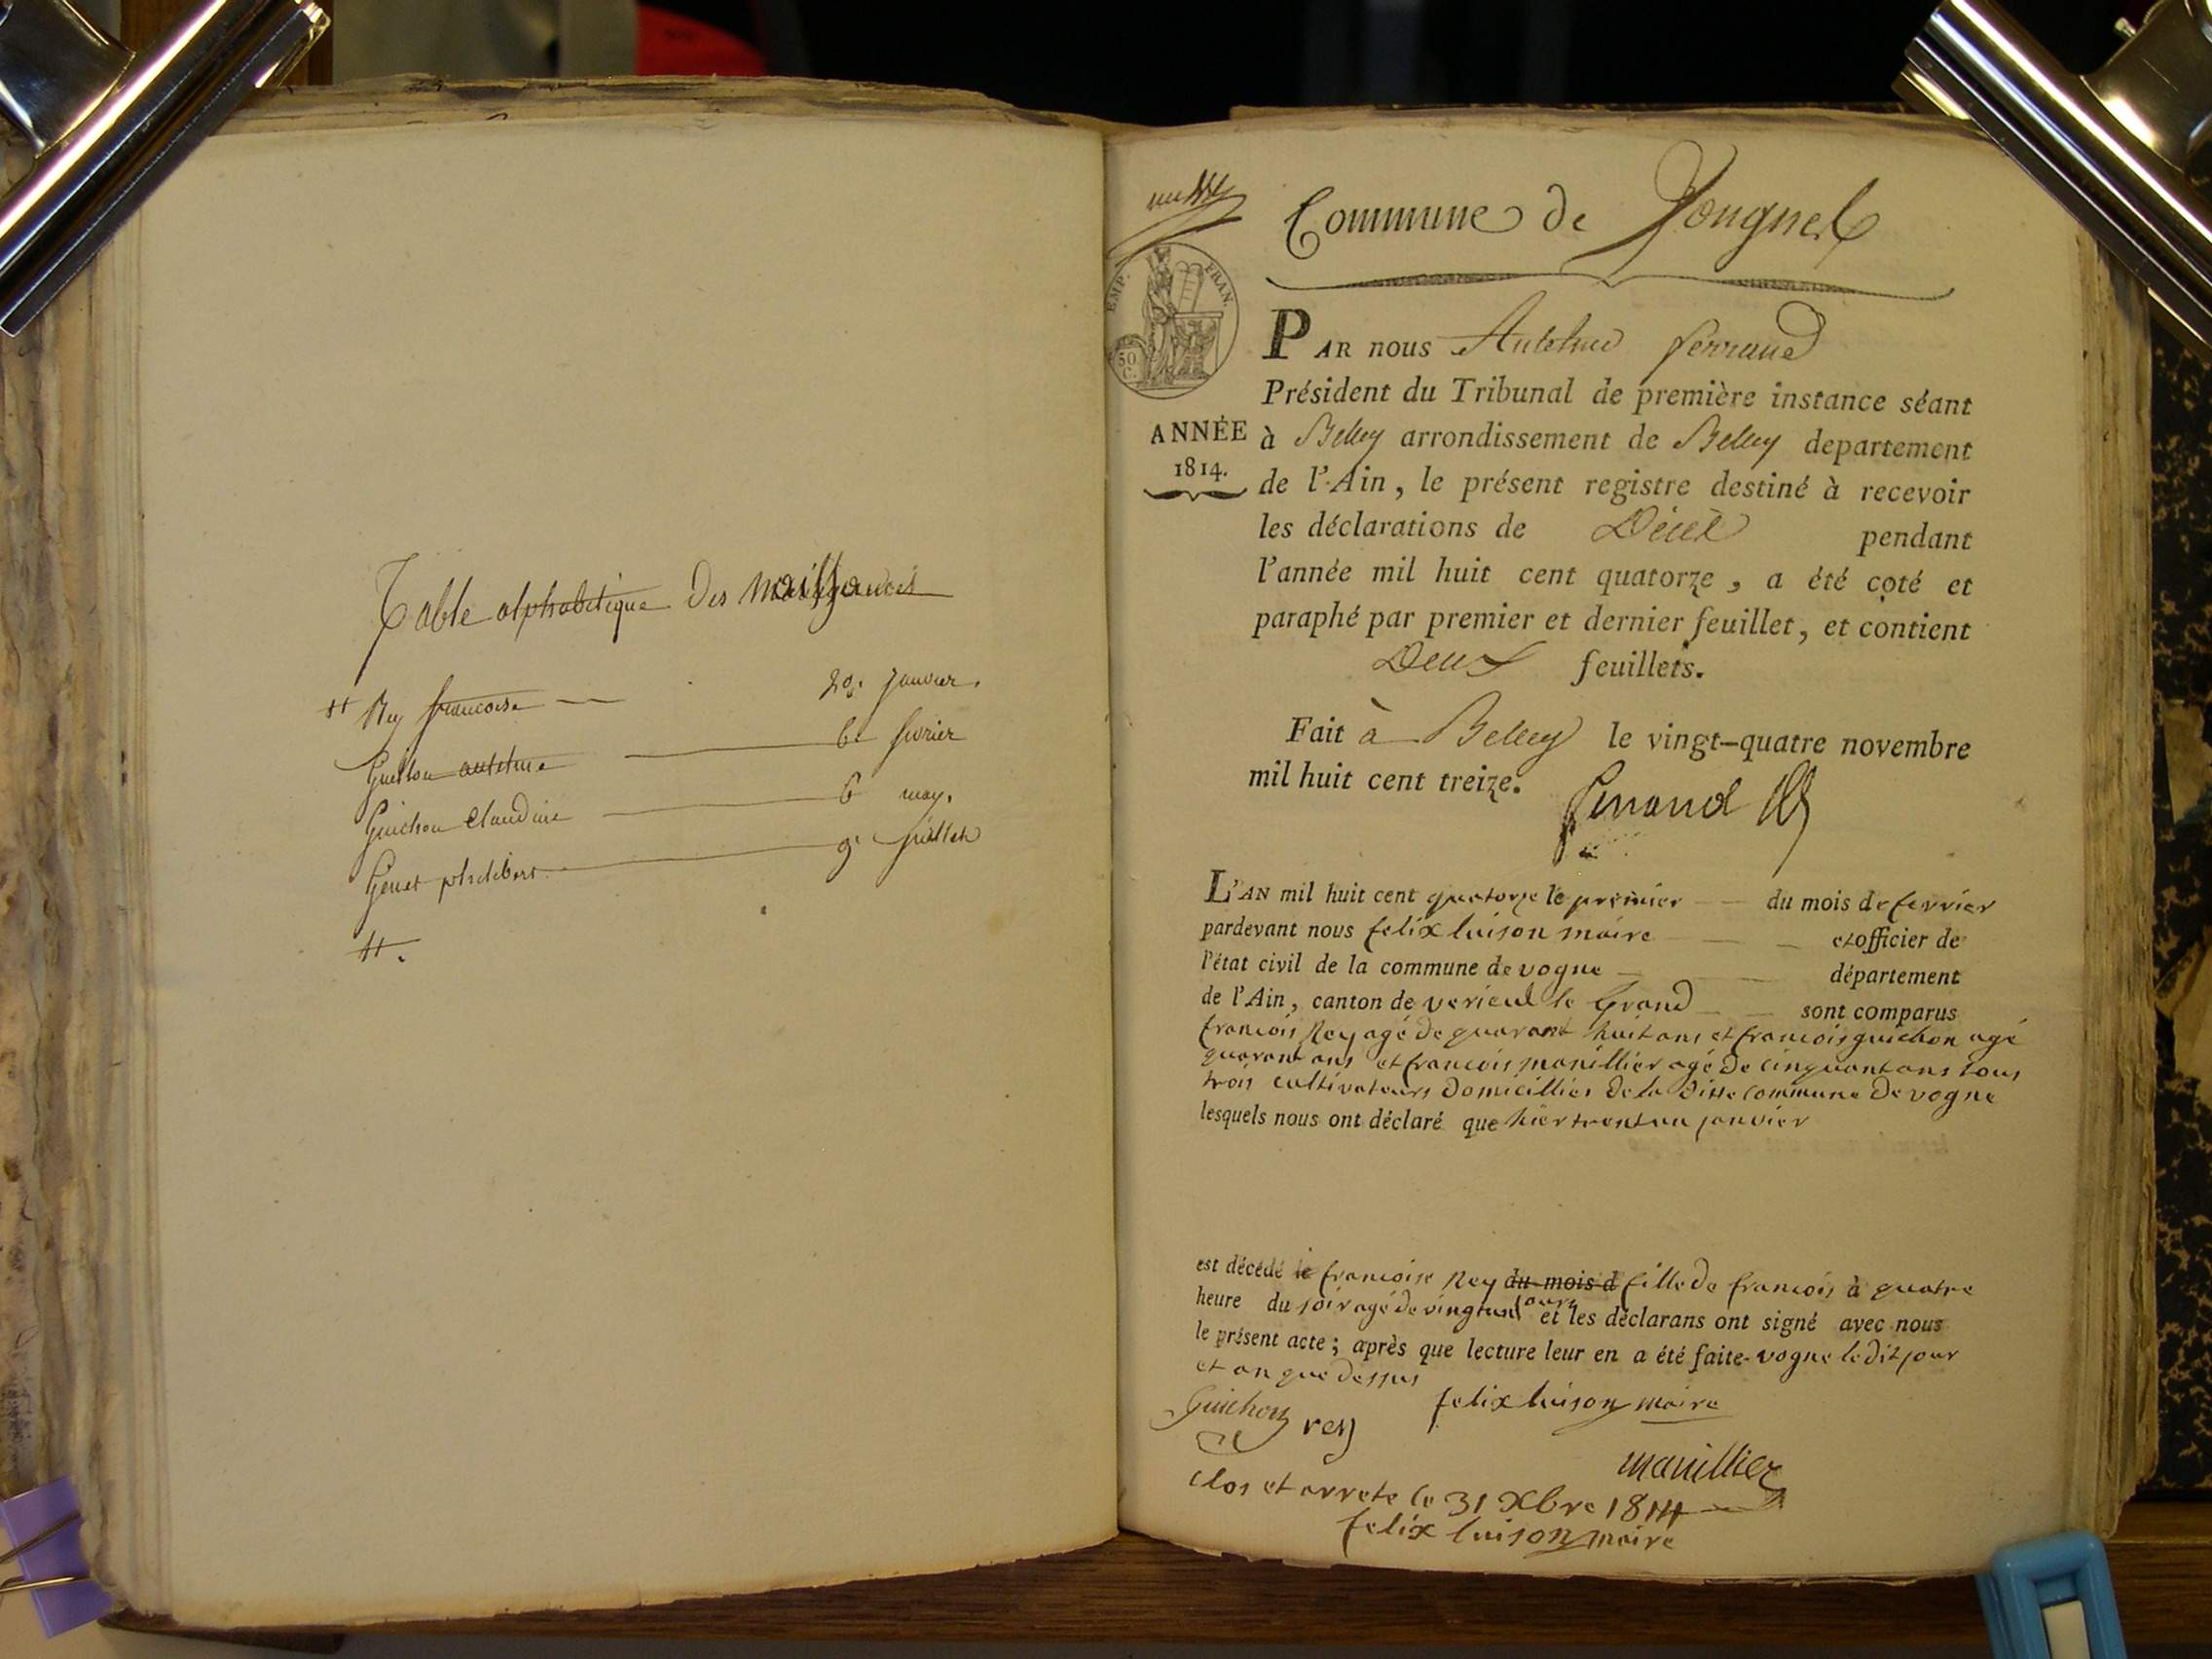 Table alphabetique Des Naissances
# Rey francoise — 29. janvier.
Guillon antelme — 6 fevrier
Guichon Claudine — 6 may.
Genet philibert — 9. juillet
#.
Commune de Vongnes
EMP. FRAN.
50 C.
ANNÉE
1814.
PAR nous Antelme ferrand
Président du Tribunal de première instance séant
à Belley arrondissement de Belley departement
de l'Ain, le présent registre destiné à recevoir
les déclarations de Décès pendant
l'année mil huit cent quatorze, a été coté et
paraphé par premier et dernier feuillet, et contient
Deux feuillets.
Fait à Belley le vingt-quatre novembre
mil huit cent treize.
ferrand
L'AN mil huit cent quatorze le premier du mois de fevrier
pardevant nous felix luison maire et officier de
l'état civil de la commune de vogne département
de l'Ain, canton de verieul le Grand sont comparus
francois Rey agé de quarant huit ans et francois guichon agé
quarant ans et francois manillier agé de cinquant ans tous
trois cultivateurs domicilliés de la ditte commune de vogne
lesquels nous ont déclaré que hier trent un janvier
est décédé le francoise Rey du mois d fille de francois à quatre
heure du soir agé de vingt un jours et les déclarans ont signé avec nous
le présent acte; après que lecture leur en a été faite. vogne le dit jour
et an que dessus
Guichon rey felix luison maire
manillier
clos et arrete le 31 Xbre 1814
felix luison maire